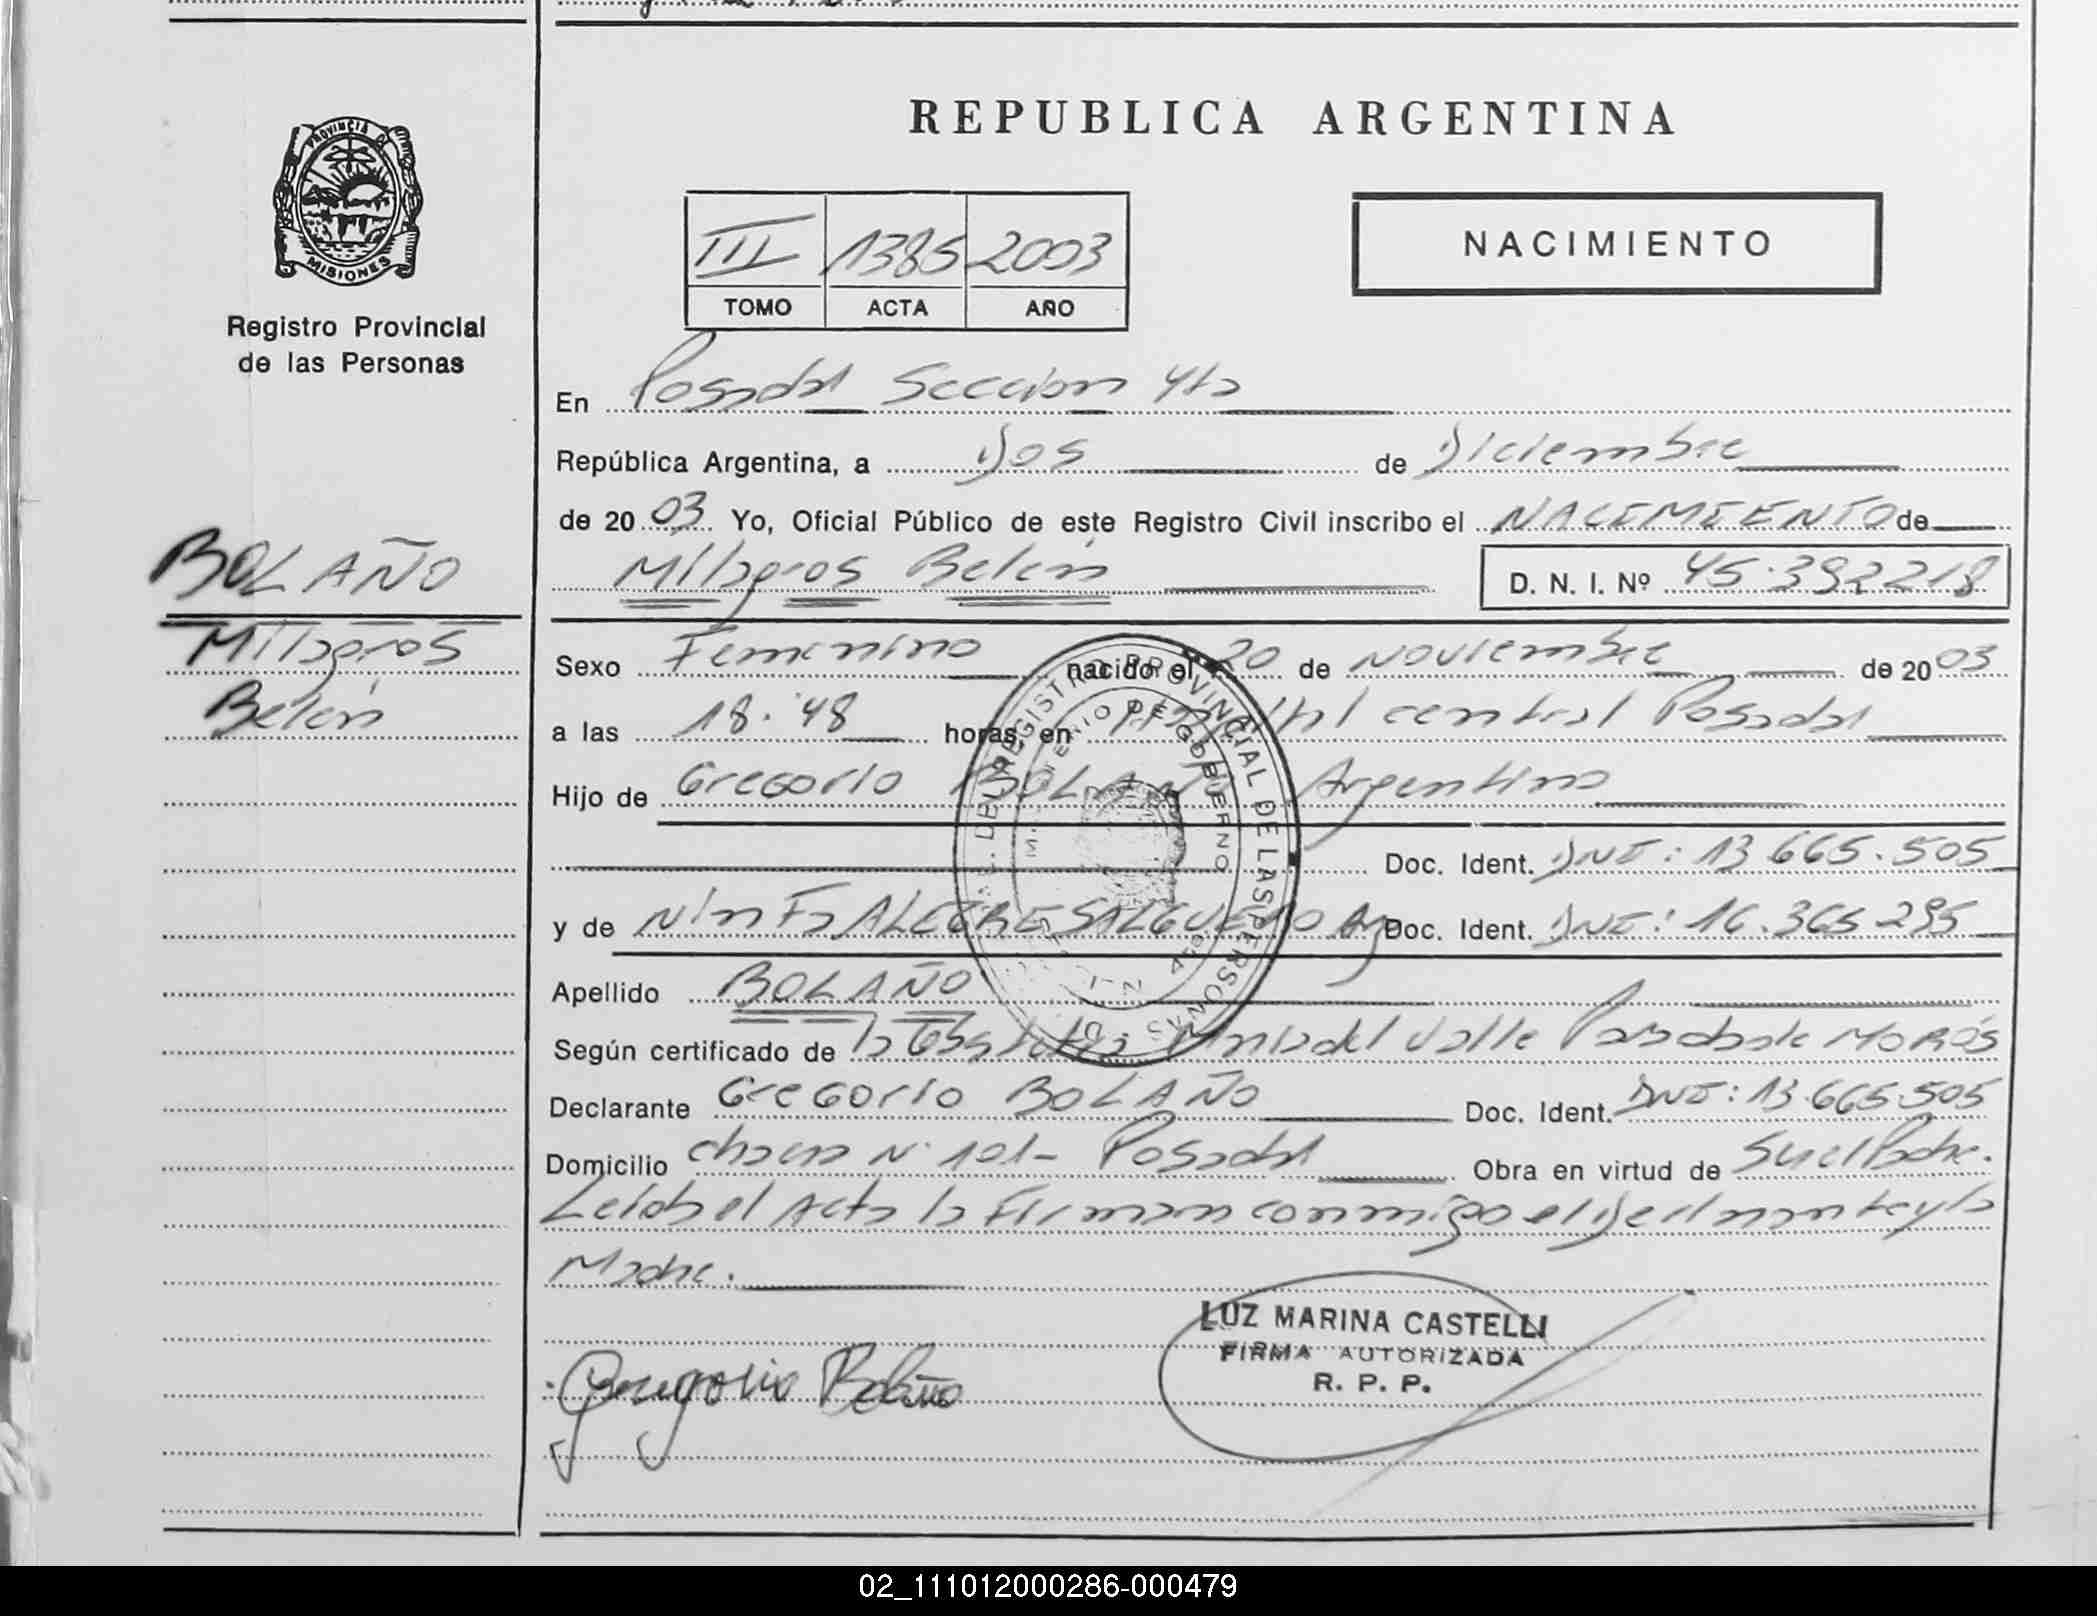 PROVINCIA DE
MISIONES
Registro Provincial
de las Personas
BOLAÑO
Milagros
Belén
REPUBLICA ARGENTINA
III 1385 2003
TOMO ACTA AÑO
NACIMIENTO
En Posadas Seccion 4ta
República Argentina, a Dos de Diciembre
de 2003 Yo, Oficial Público de este Registro Civil inscribo el NACIMIENTO de
Milagros Belén D. N. I. Nº 45.392218
Sexo Femenino nacido el 20 de Noviembre de 2003
a las 18:48 horas, en Hospital central Posadas
Hijo de Gregorio BOLAÑO Argentino
Doc. Ident. DNI: 13.665.505
y de Ninfa ALEGRE SALGUERO Arg Doc. Ident. DNI: 16.365.295
Apellido BOLAÑO
Según certificado de la Obstetra Maria del Valle MOROS
Declarante Gregorio BOLAÑO Doc. Ident. DNI: 13.665.505
Domicilio chacra N° 101- Posadas Obra en virtud de Ser el Padre.
Leida el Acta la Firman conmigo el Declarante y la
Madre.
Gregorio Bolaño
LUZ MARINA CASTELLI
FIRMA AUTORIZADA
R. P. P.
REGISTRO PROVINCIAL DE LAS PERSONAS
MINISTERIO DE GOBIERNO
02_111012000286-000479